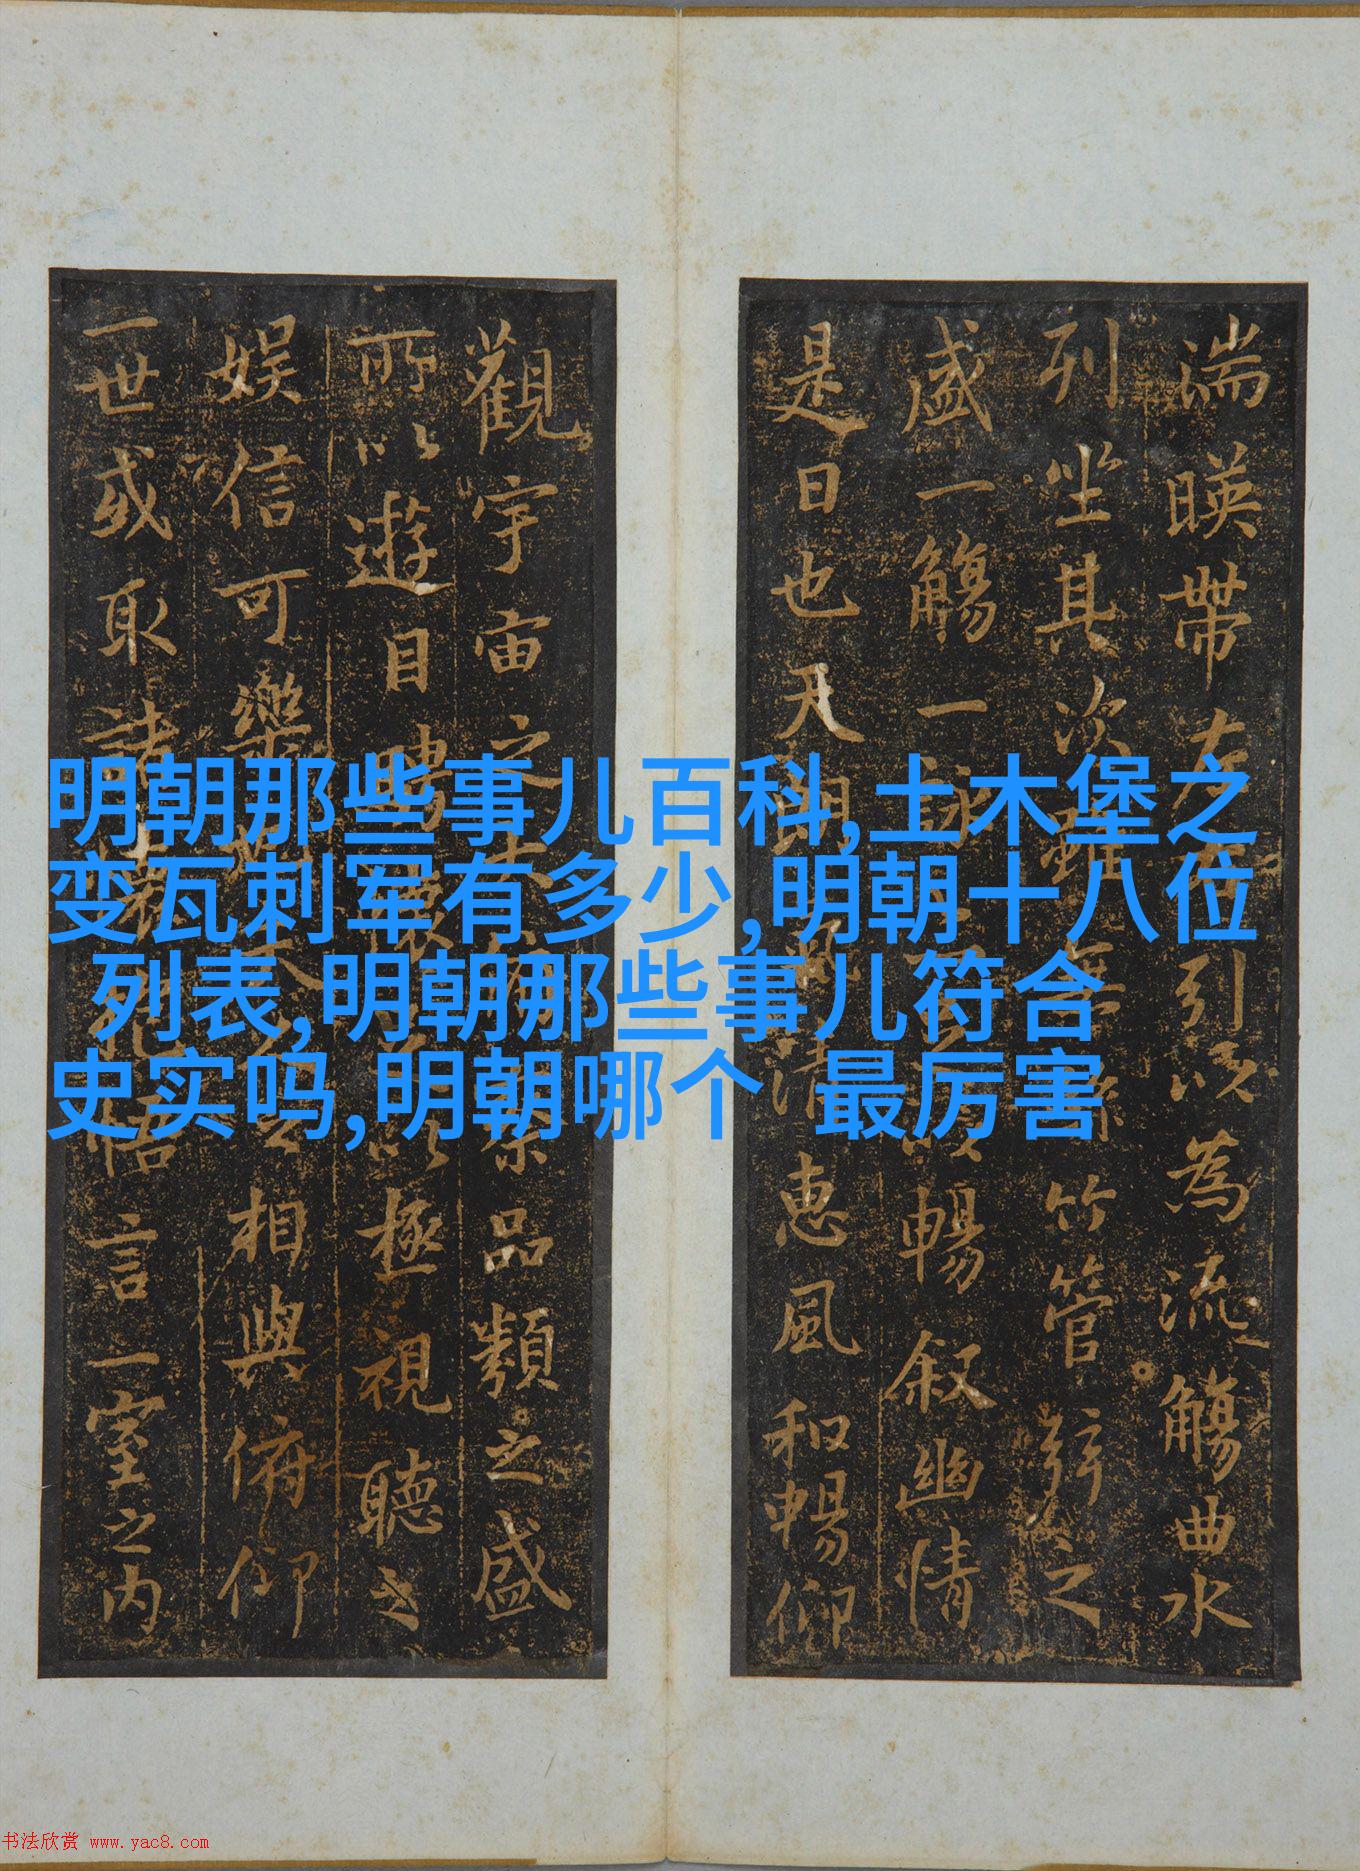 明朝那些事儿百科,土木堡之
变瓦刺军有多少,明朝十八位
列表,明朝那些事儿符合
史实吗,明朝哪个 最厉害
湍暎帶左引以為流觴曲水
列坐其次雖無竹管弦之
盛一觴一詠暢叙幽情
是日也天朗清惠風和暢仰
觀宇宙之品類之盛
所以遊目騁懷以極視聽之
娛信可樂之相與俯仰
一世或取諸悟言一室之內
书法欣赏 www.yac8.com